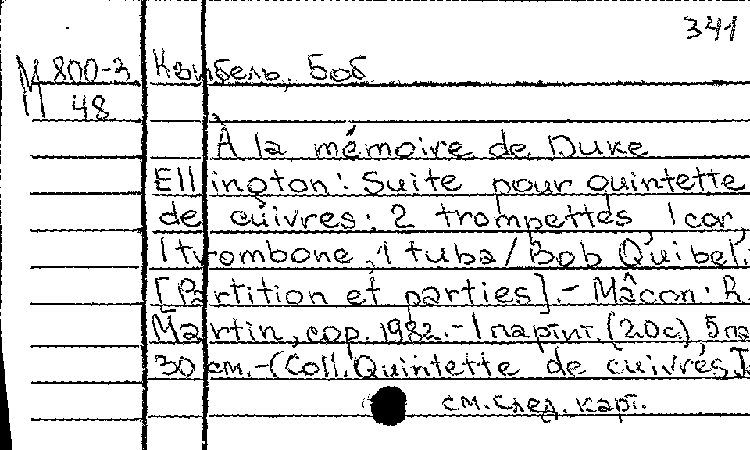 341
М 800-3 Квибель, Боб
48
À la mémoire de Duke
Ellington: Suite pour quintette
de cuivres: 2 trompettes, 1 cor,
1 trombone, 1 tuba / Bob Quibel.
[Partition et parties]. - Mâcon: R.
Martin, cop. 1982. - 1 парт. (20с) 5 па
30 см. - (Coll. Quintette de cuivres J.
см. след. карт.